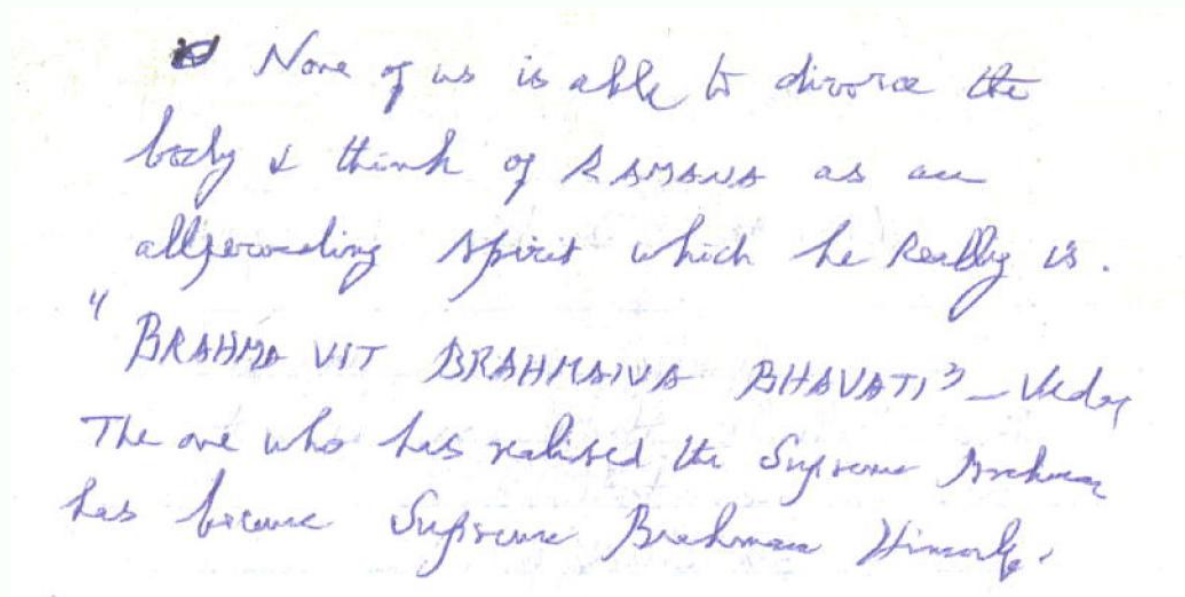 None of us is able to divorce the
body & think of RAMANA as an
allpervading spirit which he Really is.
"BRAHMA VIT BRAHMAIVA BHAVATI" – Vedas
The one who has realised the Supreme Brahman
has become Supreme Brahman Himself.